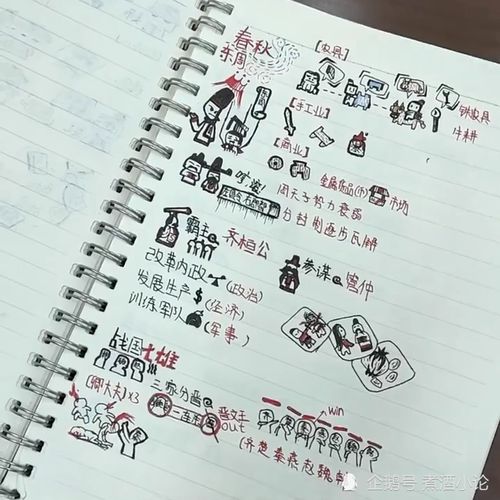 春秋
东周
[农具]
铁农具
牛耕
[手工业]
[商业]
金属货币(币)
市场
周天子势力衰弱
分封制逐步瓦解
霸主
齐桓公
参谋
管仲
改革内政
(政治)
发展生产
$
(经济)
训练军队
(军事)
战国七雄
(卿大夫)x3
三家分晋
晋文王
out
win
(齐楚秦燕赵魏韩)
企鹅号 煮酒小论